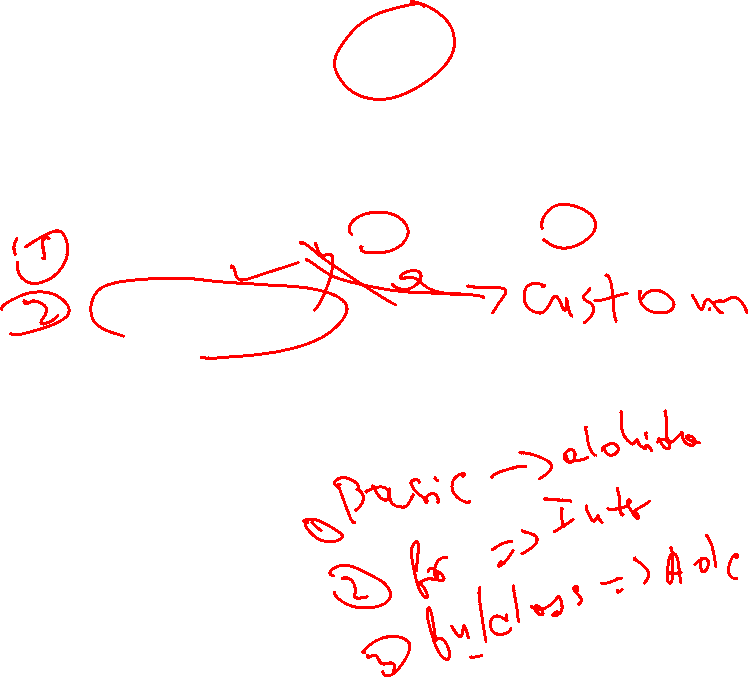 ①
② → Custom
① Basic → alohida
② for => Intr
③ fu/class => Adc